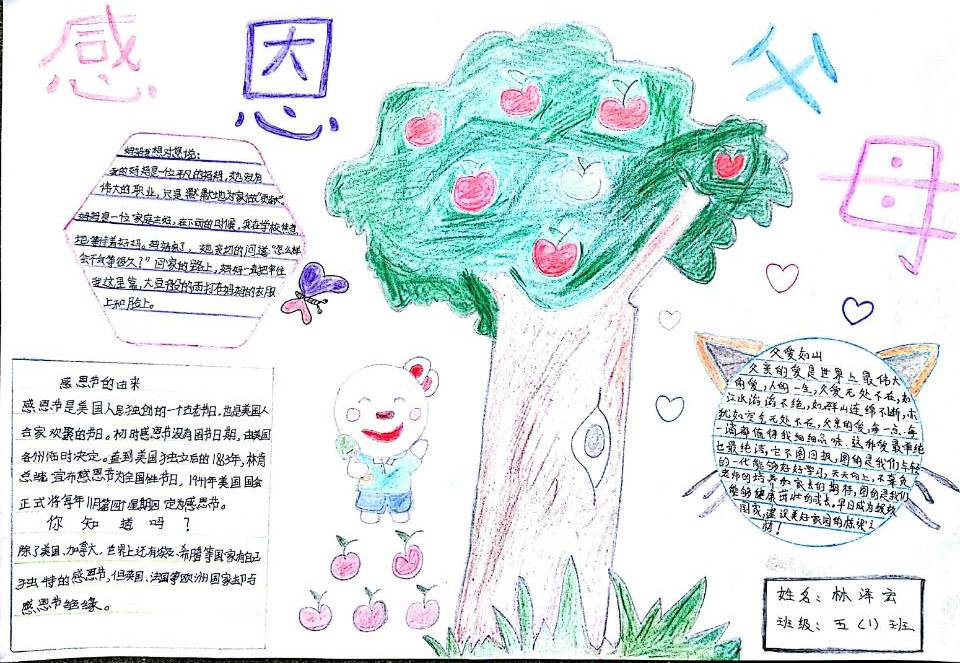 感恩父母
妈妈我想对您说:
我的妈妈是一位平凡的妈妈,她没有
伟大的职业,只是默默地为家做"贡献"。
妈妈是一位家庭主妇,在下雨的时候,我在学校焦急
地等待着妈妈。妈妈来了,她亲切的问道:"怎么样
会不会等很久了?"回家的路上,妈妈一直把伞往
我这里靠,大豆般的雨打在妈妈的衣服
上和脸上。
感恩节的由来
感恩节是美国人民独创的一个古老节日,也是美国人
合家欢聚的节日。初时感恩节没有固节日期,由美国
各州临时决定。直到美国独立后的1863年,林肯
总统宣布感恩节为全国性节日。1941年美国国会
正式将每年11月第四个星期四定为感恩节。
你知道吗?
除了美国、加拿大,世界上还有埃及、希腊等国家有自己
独特的感恩节,但英国、法国等欧洲国家却与
感恩节绝缘。
父爱如山
父亲的爱是世界上最伟大
的爱,人的一生,父爱无处不在,如
江水滔滔不绝,如群山连绵不断,
犹如空气无处不在,父亲的爱,每一点、每
一滴都值得我细细品味。这种爱最单纯
也最纯洁,它不图回报,图的是我们年轻
的一代能够好好学习,天天向上,不辜负
老师的培养和家长的期待,图的是我们
能够健康茁壮的成长,早日成为报效
国家,建设美好家园的栋梁之
材!
姓名:林泽宏
班级:五(1)班